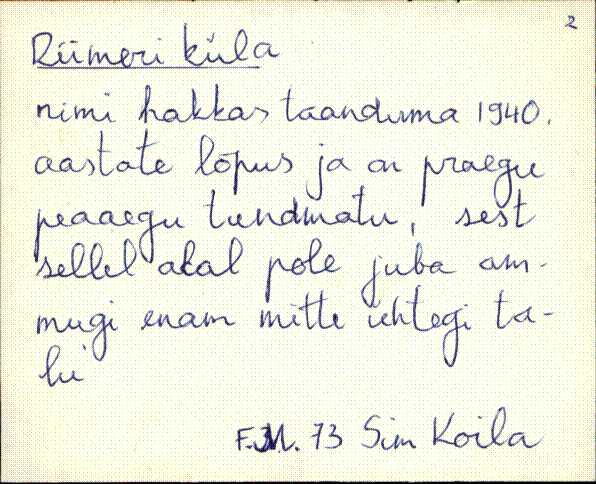 2
Rümeri küla
nimi hakkas taanduma 1940.
aastate lõpus ja on praegu
peaaegu tundmatu, sest
sellel alal pole juba am-
mugi enam mitte ühtegi ta-
lu
F.M. 73 Sim Koila